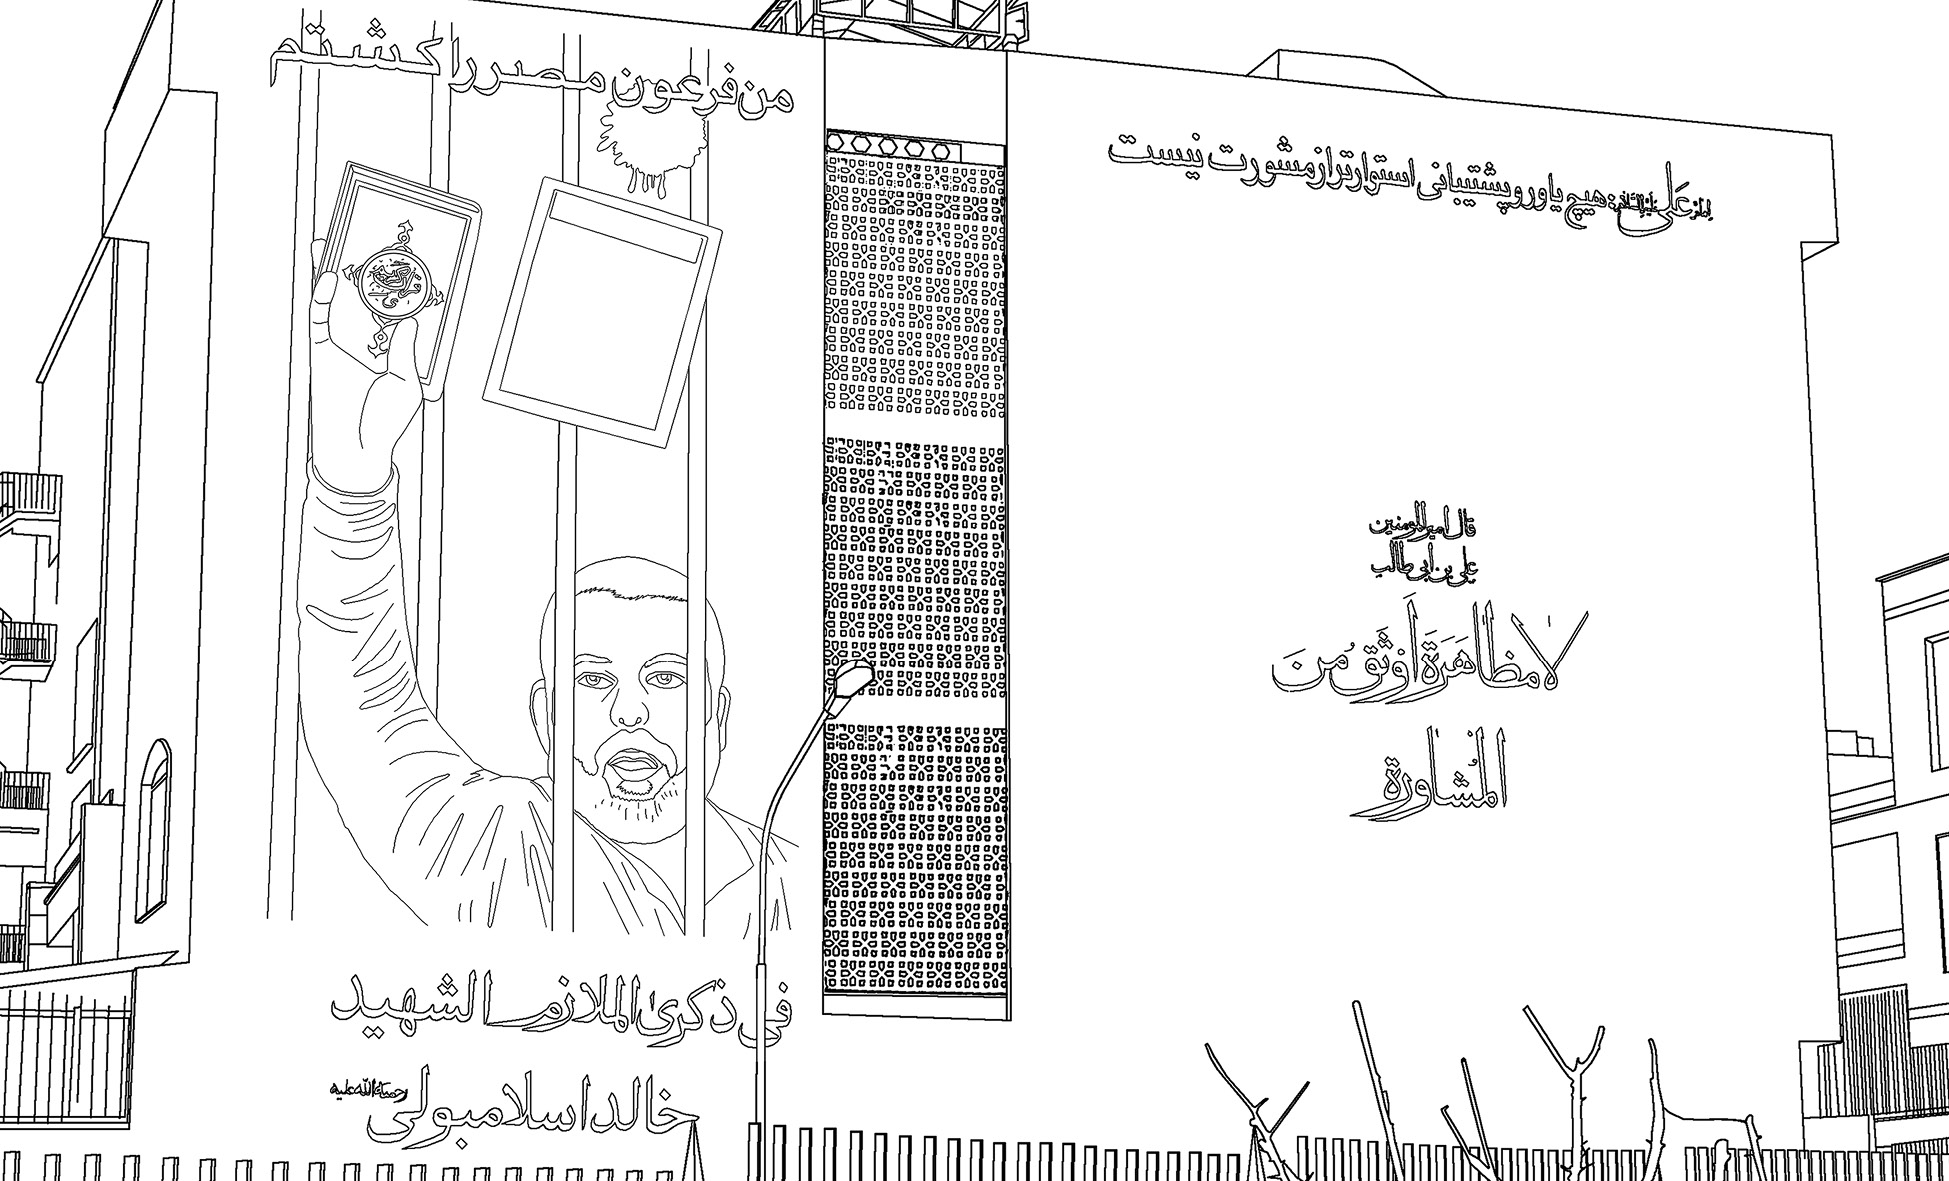 من فرعون مصر را کشتم
امام علی علیه السلام: هیچ یاور و پشتیبانی استوارتر از مشورت نیست
قال امیرالمومنین
علی بن ابی طالب
لا مظاهَرَة أَوثَق مُن
المُشاورة
في ذكرىٰ الملازم الشهيد
خالد اسلامبولی رحمةالله علیه